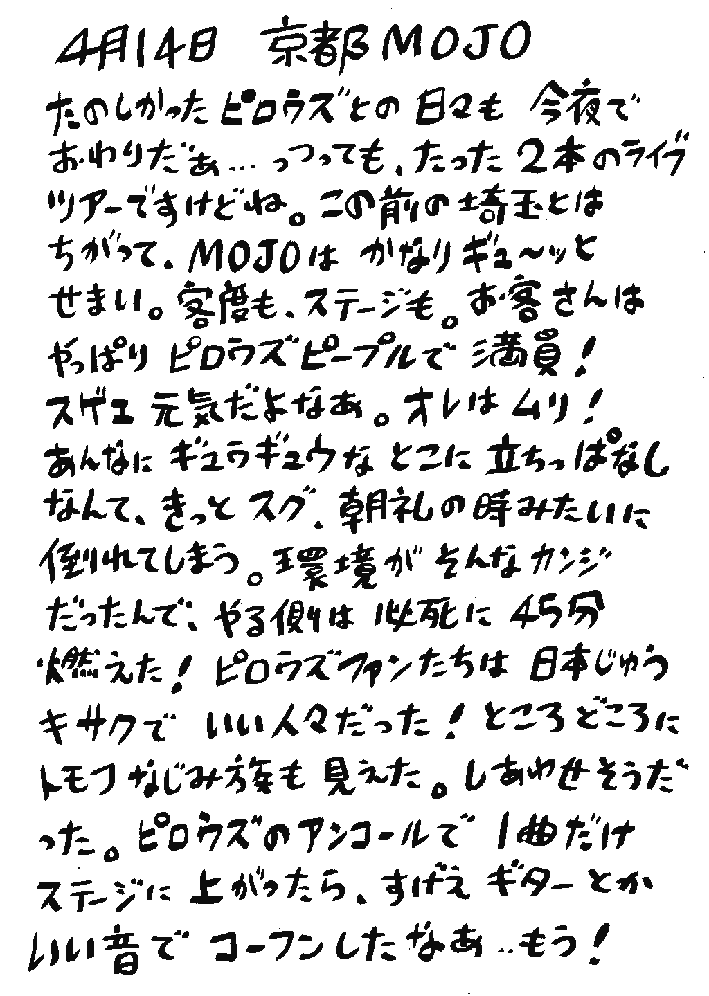 4月14日 京都MOJO
たのしかった ピロウズとの 日々も 今夜で
おわりだぁ… っつっても、たった 2本のライブ
ツアーですけどね。この前の埼玉とは
ちがって、MOJOは かなりギュ〜ッと
せまい。客席も、ステージも。お客さんは
やっぱり ピロウズピープルで 満員!
スゲェ 元気だよなあ。オレは ムリ!
あんなに ギュウギュウな とこに 立ちっぱなし
なんて、きっと スグ、朝礼の時みたいに
倒れてしまう。環境が そんな カンジ
だったんで、やる側は 必死に 45分
燃えた! ピロウズファンたちは 日本じゅう
キサクで いい人々だった! ところどころに
トモフなじみ族も 見えた。しあわせそうだ
った。ピロウズのアンコールで 1曲だけ
ステージに 上がったら、すげえ ギターとか
いい音で コーフンしたなあ…もう!